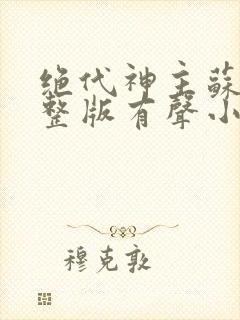 绝代神主蘇
整版有聲小
穆克敦